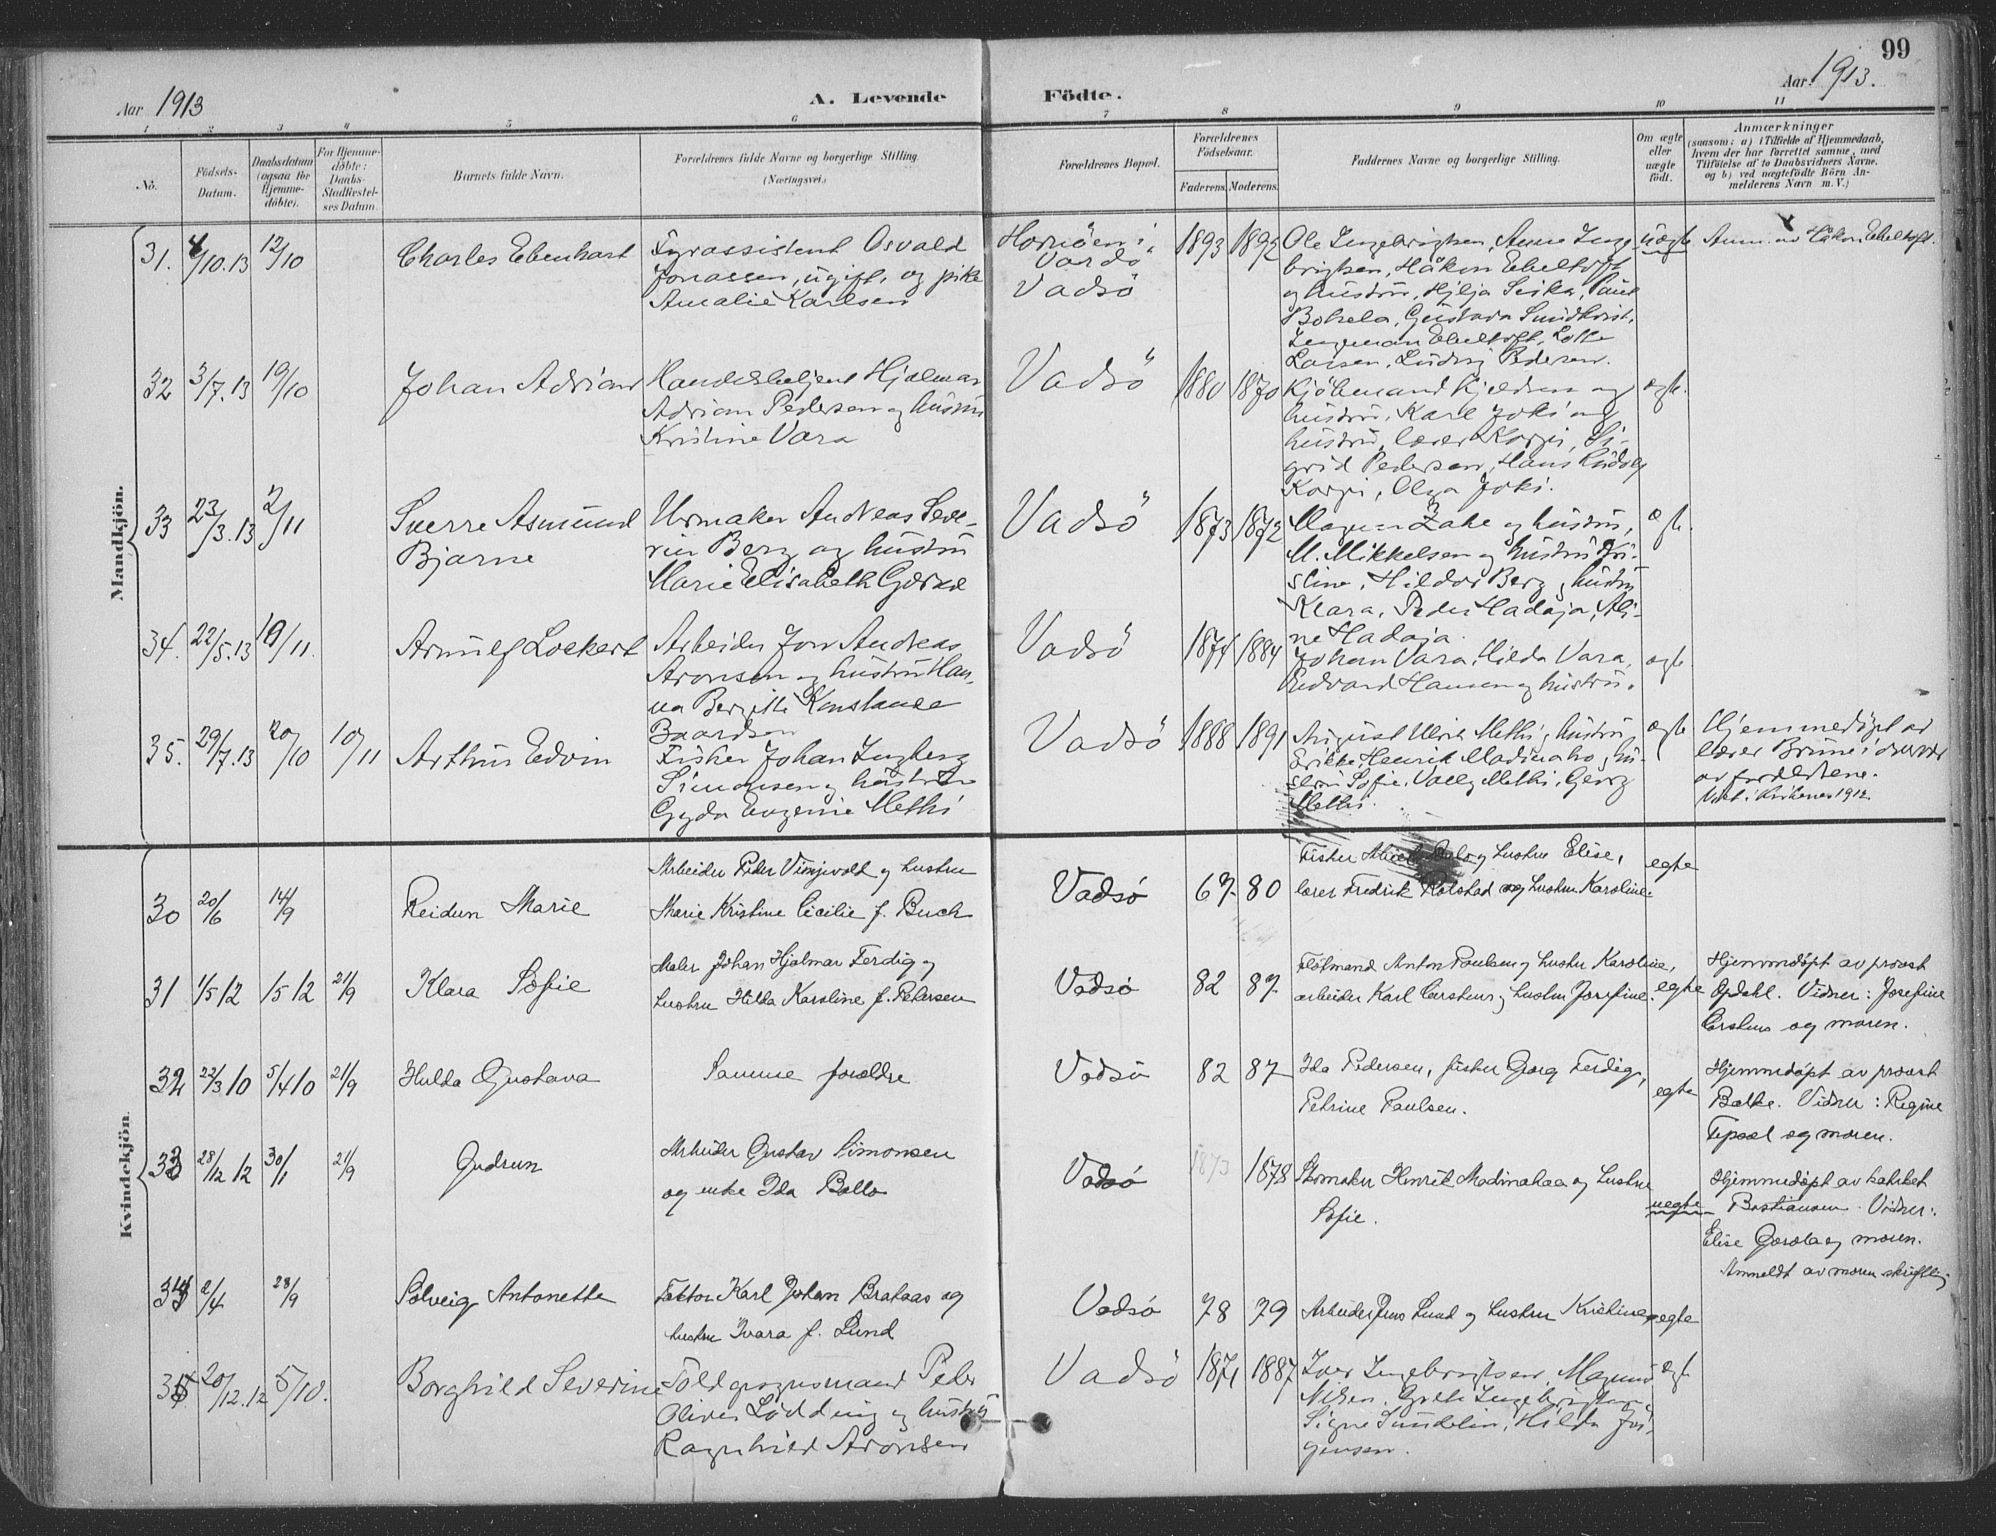 99
Aar 1913
A. Levende Födte.
Aar 1913.
1 2 3 4 5 6 7 8 9 10 11
No.
Födsels-Datum.
Daabsdatum (ogsaa for Hjemme-döbte).
For Hjemme-döbte: Daabs-Stadfæstel-ses Datum.
Barnets fulde Navn.
Forældrenes fulde Navne og borgerlige Stilling. (Næringsvei.)
Forældrenes Bopæl.
Forældrenes Födselsaar.
Faderens. Moderens.
Faddernes Navne og borgerlige Stilling.
Om ægte eller uægte født.
Anmærkninger
(saasom: a) i Tilfælde af Hjemmedaab,
hvem der har forrettet samme, med
Tilföielse af to Daabsvidners Navne.
og b) ved uægtefødte Börn An-
melderens Navn m. V.)
Mandkjön.
31. 4/10.13 12/10 Charles Ebenhart
Fyrassistent Osvald
Jonassen, ugift, og pike
Amalie Karlsen
Hornöen i
Vardö
Vadsö
1893 1892
Ole Ingebrigtsen, Anna Inge
brigtsen, Håkon Ebeltoft
og hustru, Hilja
Gustava Sundkvist,
Ingeman Ebeltoft, Lotte
Larsen, Ludvig Pedersen.
uægte Anm. av Håkon Ebeltoft.
32 3/7.13 19/10 Johan Adrian
Handelsbetjent Hjalmar
Adrian Pedersen og hustru
Kristine Vara
Vadsö
1880 1870
Kjöbmand Kjeldsen og
hustru, Karl Joki og
hustru, lærer Korpi, Si-
grid Pedersen, Hans Ludvig
Korpi, Olga Joki.
ægte.
33 23/3.13 2/11 Sverre Asmund
Bjarne
Urmaker Andreas Seve-
rin Berg og hustru
Marie Elisabeth Gjersd
Vadsö
1873 1872
Magnus Zahl og hustru,
M. Mikkelsen og hustru Kri-
stine, Hildor Berg, hustru
Klara, Peder Hadaja, Ali-
ne Hadaja.
ægte.
34. 22/5.13 19/11. Arnulf Lockert
Arbeider Jon Andreas
Aronsen og hustru Han-
na Bergitte Konstanse
Baardsen
Vadsö
1874 1884
Johan Vara, Hilda Vara,
Edvard Hansen og hustru.
ægte
35. 29/7.13 20/10 10/11 Arthur Edvin
Fisker Johan Ingberg
Simonsen og hustru
Gyda Eugenie Methi
Vadsö
1888 1891
August Ulrik Methi, hustru
Erikke, Henrik Madinaho, hu-
stru Sofie, Vally Methi, Georg
Methi.
ægte
Hjemmedöpt av
lærer Brune i nærvær
av forældrene.
Viet i Kirkenes 1912
Kvindekjön.
30 20/6 14/9 Reidun Marie
Arbeider Peder Vinjevold og hustru
Marie Kristine Cicilie f. Buch
Vadsö
67 80
Fisker og hustru Elise,
lærer Fredrik Rolstad og hustru Karoline.
egte
31 1/5 12 /5 12 21/9 Klara Sofie
Maler Johan Hjalmar Ferdig og
hustru Hilda Karoline f. Petersen
Vadsö
82 87
Flötmand Anton Paulsen og hustru Karoline,
arbeider Karl Carstens og hustru Josefine.
egte
Hjemmdöpt av provst
Opdahl. Vidner: Josefine
Carstens og moren.
32 22/3 10 5/4 10 21/9 Hulda Gustava
Samme foreldre
Vadsö
82 87
Ida Pedersen, fisker Georg Ferdig,
Petrine Paulsen.
egte
Hjemmdöpt av provst
Balke. Vidner: Regine
Tipsæl og moren.
33 28/12 12 30/1 21/9 Gudrun
Arbeider Gustav Simonsen
og enke Ida Ballo
Vadsö
1873 1878
Skomaker Henrik Madinahaa og hustru
Sofie.
uegte
Hjemmedöpt av kateket
Bastiansen. Vidner:
Elise Gærdla og moren.
Anmeldt av moren skriftlig
34 2/4 28/9 Solveig Antonette
Faktor Karl Johan Brataas og
hustru Ivara f. Lund
Vadsö
78 79
Arbeider Jens Lund og hustru Kristine
egte
35 20/12.12 5/10. Borghild Severine
Toldopsynsmand Peter
Oliver Lødding og hustru
Ragnhild Aronsen
Vadsö
1871 1887
Iver Ingebrigtsen, Magnus
Nilsen, Greta Ingebrigtsen,
Signe Sundelin, Hilda Jör-
gensen.
ægt.